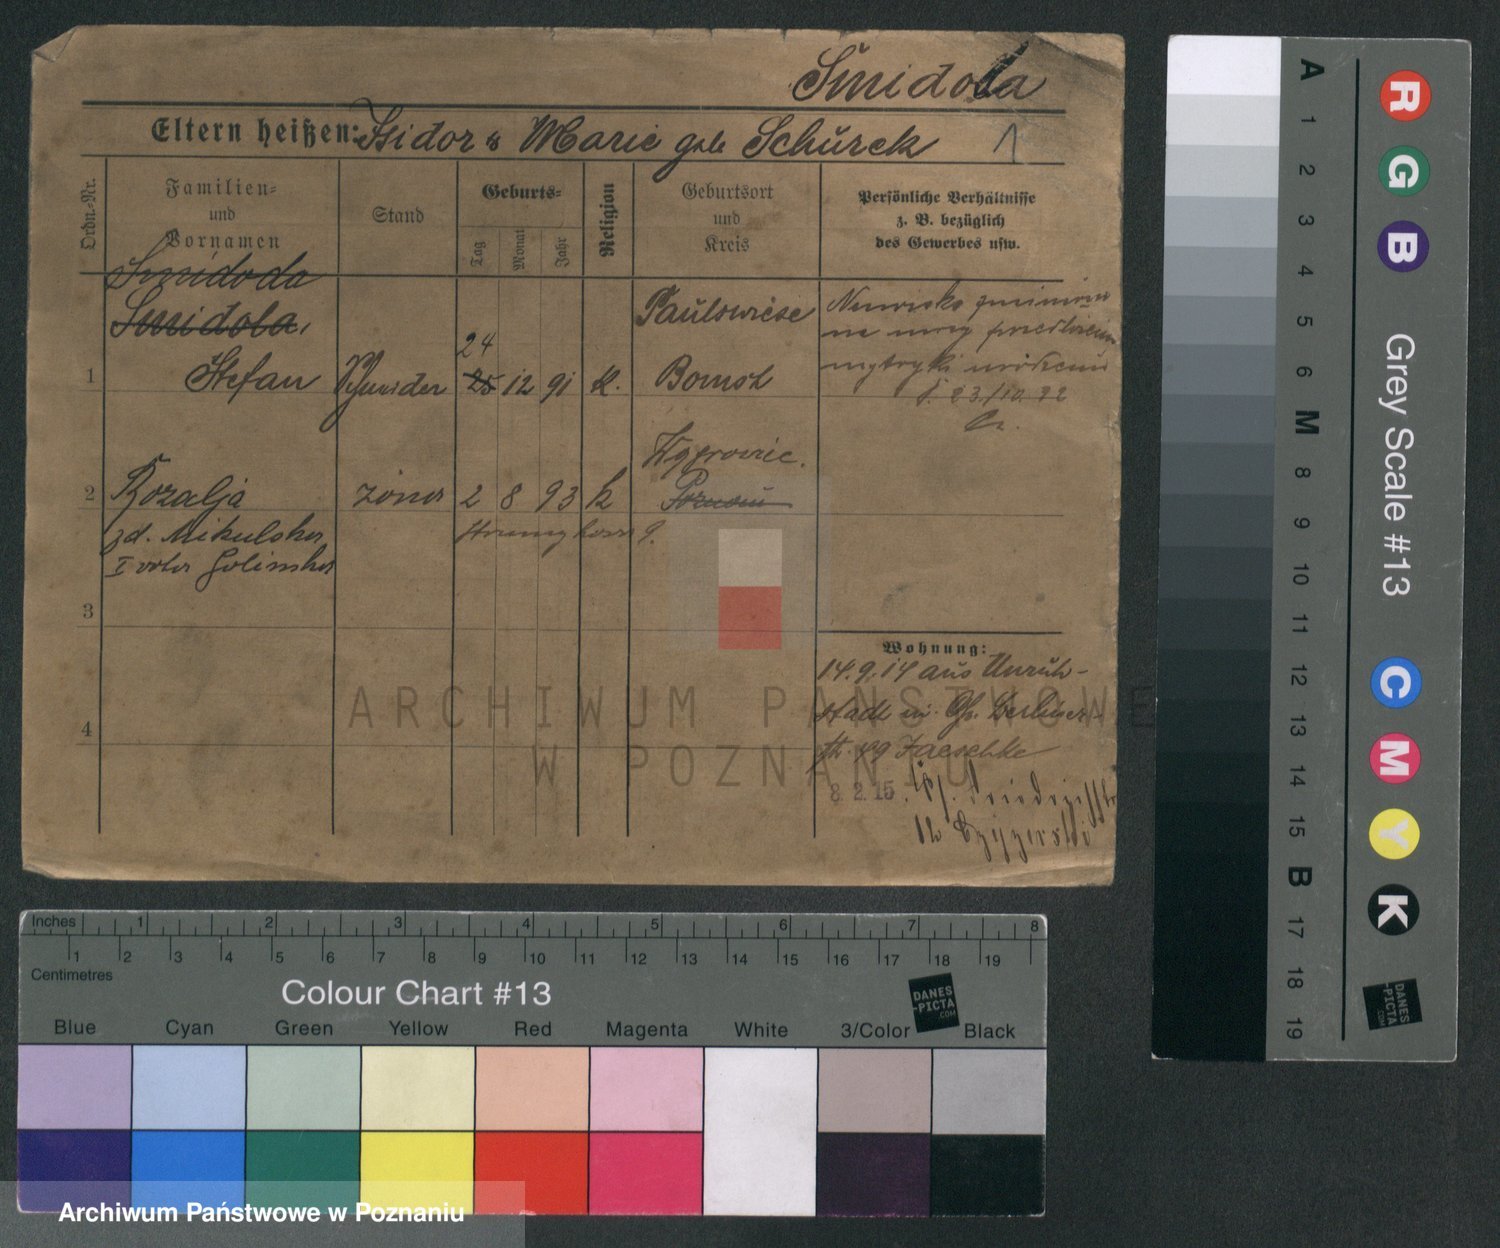 Śmidoda
Eltern heißen: Isidor & Marie geb Schürek 1
Ordn.-Nr.
Familien-
und
Vornamen
Stand
Geburts-
Tag
Monat
Jahr
Religion
Geburtsort
und
Kreis
Persönliche Verhältnisse
z. B. bezüglich
des Gewerbes usw.
Śmidoda
Smidola,
1 Stefan
24
25 12 91 k.
Paulswiese
Bomst
Nazwisko zmieniono
na mocy
metryki urodzenia
d. 23/10. 22
2 Rozalja żona 2 8 93 k
zd. Mikulska
I voto Golinska
3
4
Wohnung:
14.9.14 aus Unruh-
stadt
Jaeschke
8. 2. 15.
ARCHIWUM PAŃSTWOWE
W POZNANIU
A 1 2 3 4 5 6 M 8 9 10 11 12 13 14 15 B 17 18 19
R G B
Grey Scale #13
C M Y K
DANES
-PICTA
.COM
Inches 1 2 3 4 5 6 7 8
1 2 3 4 5 6 7 8 9 10 11 12 13 14 15 16 17 18 19
Centimetres
Colour Chart #13
DANES
-PICTA
.COM
Blue Cyan Green Yellow Red Magenta White 3/Color Black
Archiwum Państwowe w Poznaniu